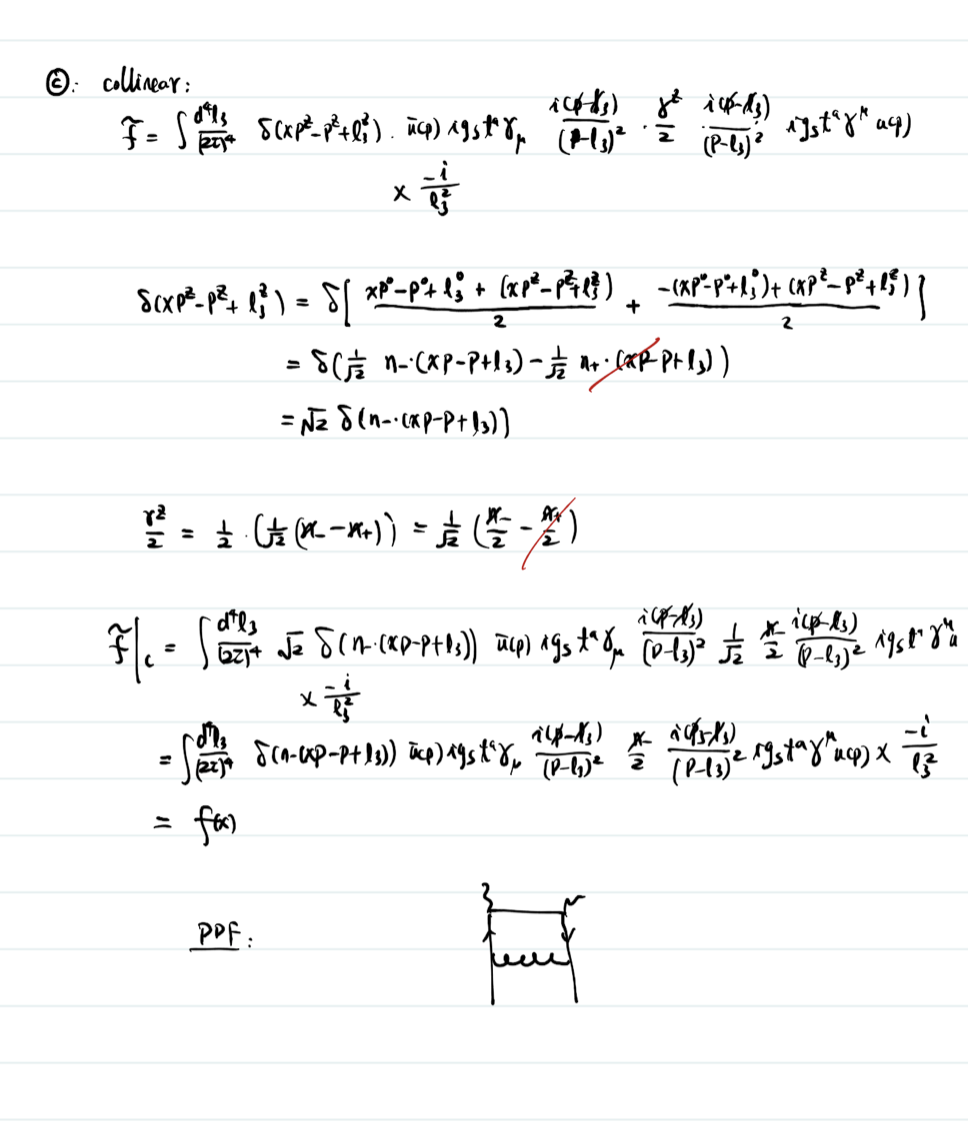 ⓒ: collinear:
f̃ = ∫ d⁴l₃/(2π)⁴ δ(xpᶻ-pᶻ+l₃ᶻ) · ū(p) i g_s tᵃ γ_μ i(p̸-l̸₃)/(p-l₃)² · γᶻ/2 · i(p̸-l̸₃)/(p-l₃)² i g_s tᵃ γ^μ u(p)
× -i/l₃²
δ(xpᶻ-pᶻ+l₃ᶻ) = δ[ (xp⁰-p⁰+l₃⁰ + (xpᶻ-pᶻ+l₃ᶻ))/2 + (-(xp⁰-p⁰+l₃⁰)+(xpᶻ-pᶻ+l₃ᶻ))/2 ]
= δ(1/√2 n₋·(xp-p+l₃) - 1/√2 n₊·(xp-p+l₃))
= √2 δ(n₋·(xp-p+l₃))
γᶻ/2 = 1/2 · (1/√2 (n̸₋-n̸₊)) = 1/√2 (n̸₋/2 - n̸₊/2)
f̃|_c = ∫ d⁴l₃/(2π)⁴ √2 δ(n₋·(xp-p+l₃)) ū(p) i g_s tᵃ γ_μ i(p̸-l̸₃)/(p-l₃)² 1/√2 n̸₋/2 i(p̸-l̸₃)/(p-l₃)² i g_s tᵃ γ^μ u
× -i/l₃²
= ∫ d⁴l₃/(2π)⁴ δ(n₋(xp-p+l₃)) ū(p) i g_s tᵃ γ_μ i(p̸-l̸₃)/(p-l₃)² n̸₋/2 i(p̸-l̸₃)/(p-l₃)² i g_s tᵃ γ^μ u(p) × -i/l₃²
= f(x)
PDF: